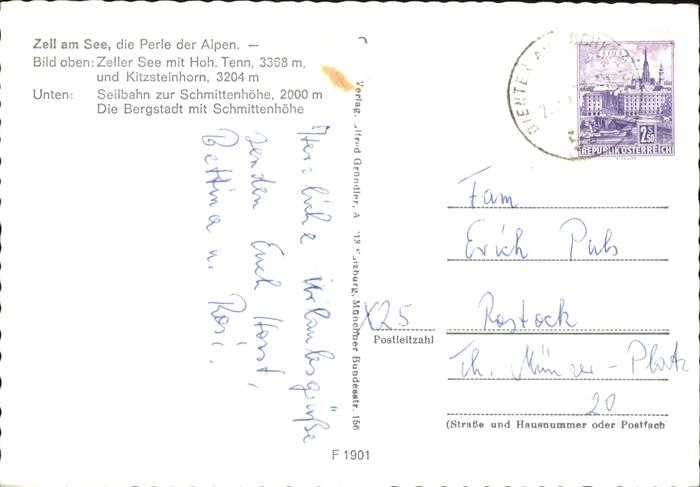 Zell am See, die Perle der Alpen. —
Bild oben: Zeller See mit Hoh. Tenn, 3368 m,
und Kitzsteinhorn, 3204 m
Unten: Seilbahn zur Schmittenhöhe, 2000 m
Die Bergstadt mit Schmittenhöhe
Herzliche Urlaubsgrüße
senden Euch Horst,
Bettina u. Rosi.
Verlag Alfred Gründler, A Salzburg, Münchner Bundesstr. 156
LINZ
2.50
REPUBLIK ÖSTERREICH
DIENTEN AM
Fam
Erich Puls
X25 Rostock
Postleitzahl
Th. Münzer-Platz
20
(Straße und Hausnummer oder Postfach)
F 1901